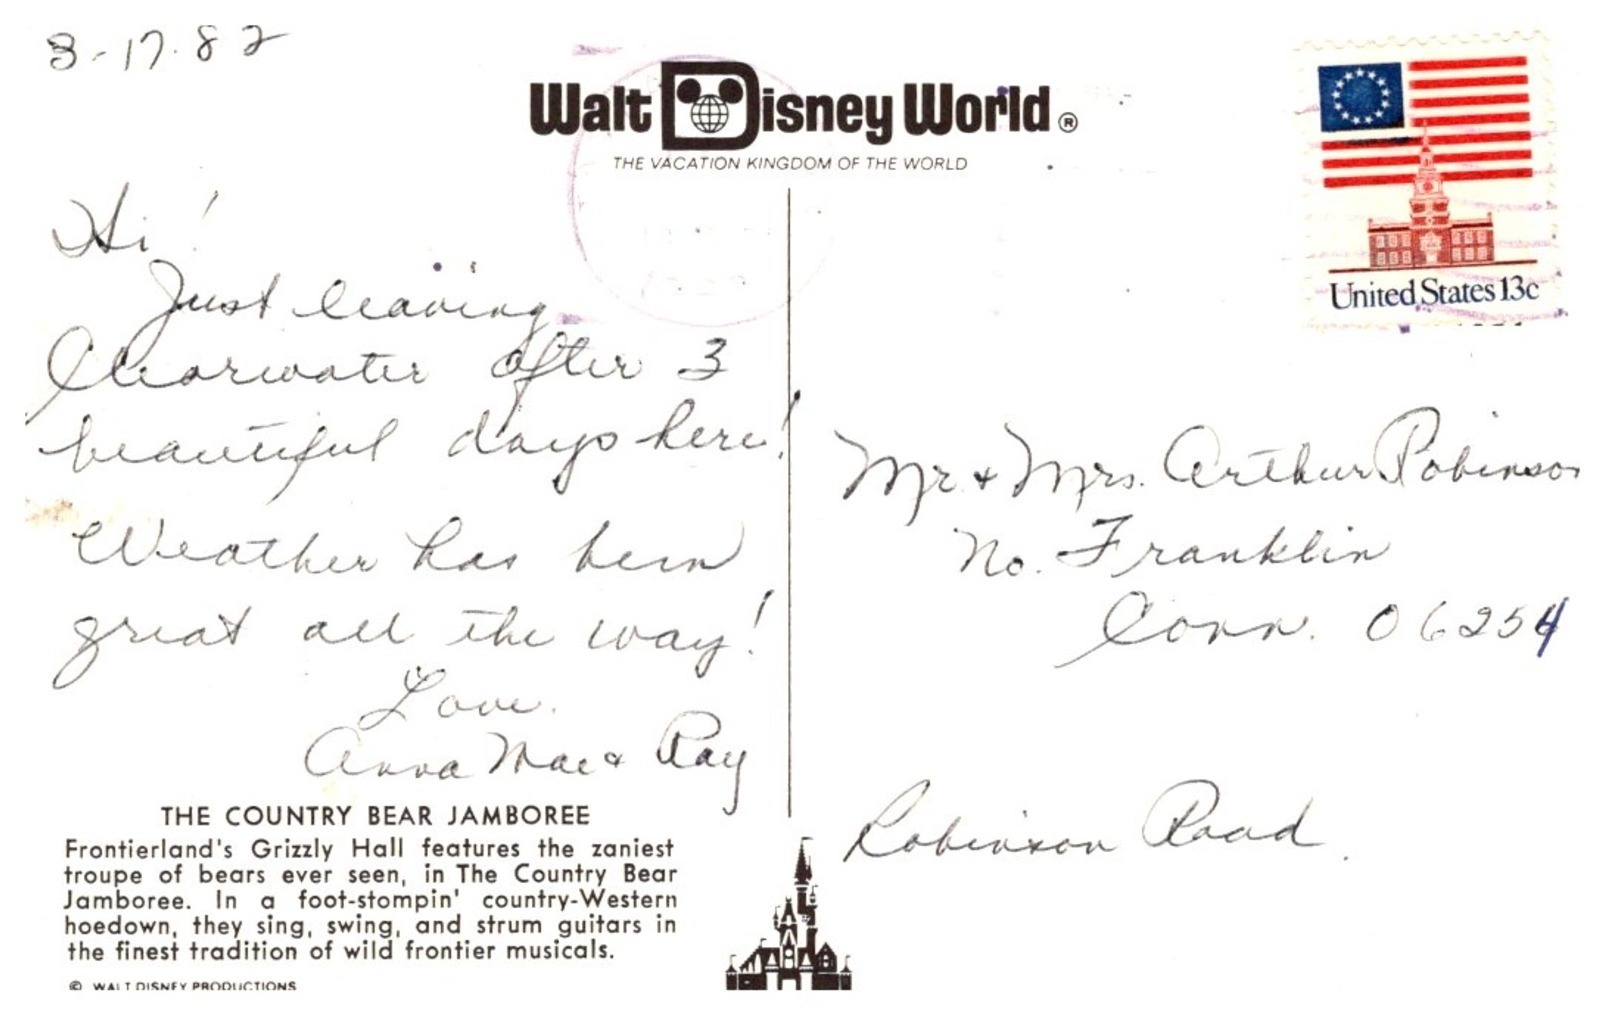 3-17-82
Walt Disney World ®
THE VACATION KINGDOM OF THE WORLD
United States 13c
Hi!
Just leaving
Clearwater after 3
beautiful days here!
Weather has been
great all the way!
Love.
Anna Mae & Ray
THE COUNTRY BEAR JAMBOREE
Frontierland's Grizzly Hall features the zaniest
troupe of bears ever seen, in The Country Bear
Jamboree. In a foot-stompin' country-Western
hoedown, they sing, swing, and strum guitars in
the finest tradition of wild frontier musicals.
© WALT DISNEY PRODUCTIONS
Mr. + Mrs. Arthur Robinson
No. Franklin
Conn. 06254
Robinson Road.